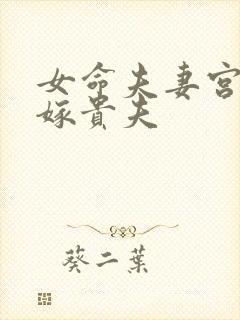 女命夫妻宮
嫁貴夫
葵二葉